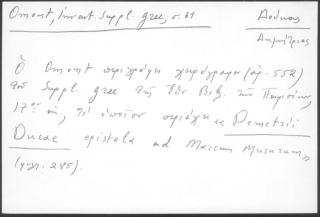 Omont, Invent. Suppl. grec, σ. 61
Δούκας
Δημήτριος
Ὁ Omont περιγράφει χειρόγραφον (ἀρ. 552)
τοῦ Suppl. grec τῆς Ἐθν. Βιβ. τῶν Παρισίων,
17ου αἰ., τὸ ὁποῖον περιέχει Demetrii
Ducae epistola ad Marcum Musurum
(φφ. 285).